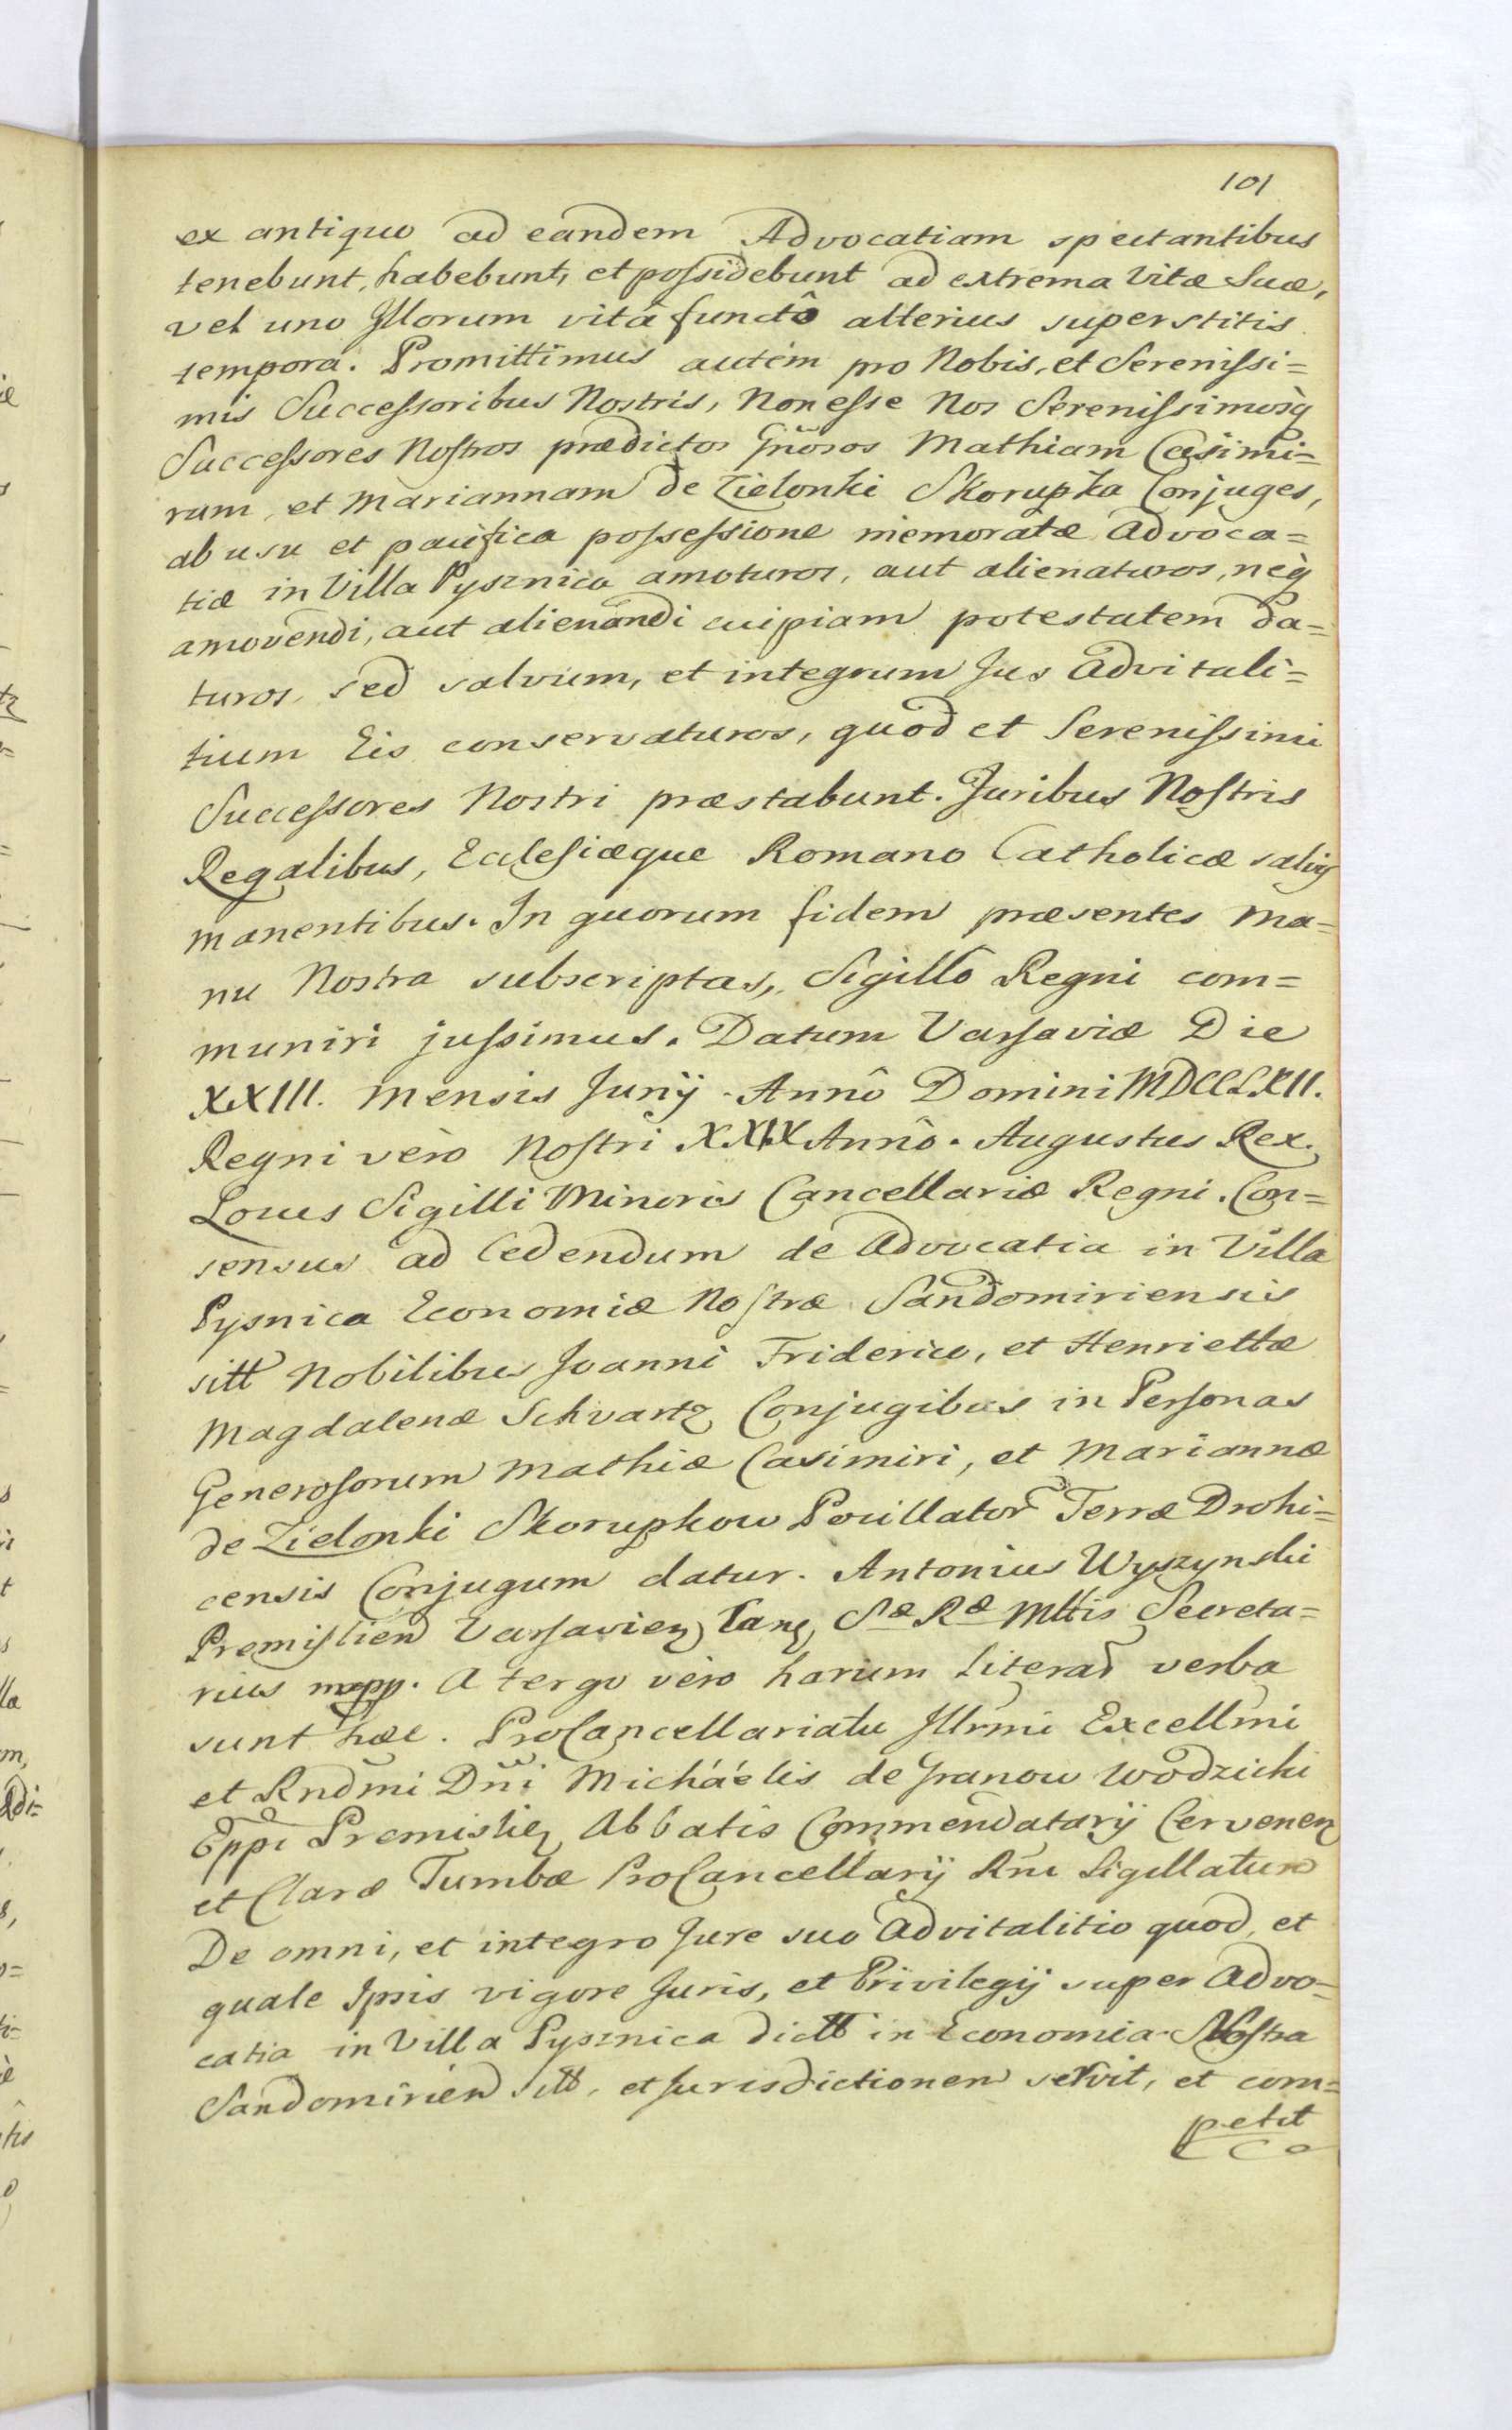 101
ex antiquo ad eandem Advocatiam spectantibus
tenebunt, habebunt, et possidebunt ad extrema Vitæ Suæ,
vel uno Illorum vitâ functô alterius superstitis
tempora. Promittimus autem pro Nobis, et Serenissi=
mis Successoribus Nostris, Non esse Nos Serenissimosq̀
Successores Nostros prædictos Gñosos Mathiam Casimi=
rum, et Mariannam de Zielonki Skorupka Conjuges,
ab usu et pacifica possessione memoratæ Advoca=
tiæ in Villa Pysznica amoturos, aut alienaturos, neq̀
amovendi, aut alienandi cuipiam potestatem da=
turos, sed salvum, et integrum Jus Advitali=
tium Eis conservaturos, quod et Serenissimi
Successores Nostri præstabunt. Juribus Nostris
Regalibus, Ecclesiæque Romano Catholicæ salvis
manentibus. In quorum fidem præsentes Ma=
nu Nostra subscriptas, Sigillo Regni com=
muniri jussimus. Datum Varsaviæ Die
XXIII. Mensis Junij Annô Domini MDCCLXII.
Regni verò Nostri XXIX Annô. Augustus Rex.
Locus Sigilli Minoris Cancellariæ Regni. Con=
sensus ad Cedendum de Advocatia in Villa
Pysnica Economiæ Nostræ Sandomiriensis
sitt Nobilibus Joanni Friderico, et Henriettæ
Magdalenæ Schvartz Conjugibus in Personas
Generosorum Mathiæ Casimiri, et Mariannæ
de Zielonki Skorupkow Pocillator Terræ Drohi=
censis Conjugum datur. Antonius Wyszynski
Premislien Varsavien Canc, Sæ Ræ Mttis Secreta=
rius mpp. A tergo verò harum Literar verba
sunt hæc. ProCancellariatu Illrmi Excellmi
et Rndmi Dñi Micháélis de Granow Wodzicki
Eppi Premislien Abbatis Commendatarij Cervenen
et Claræ Tumbæ ProCancellarij Rni Sigillatum
De omni, et integro Jure suo Advitalitio quod, et
quale Ipsis vigore Juris, et Privilegij super Advo=
catia in Villa Pysznica dictt in Economia Nostra
Sandomirien sitt, et Jurisdictionem servit, et com=
petit